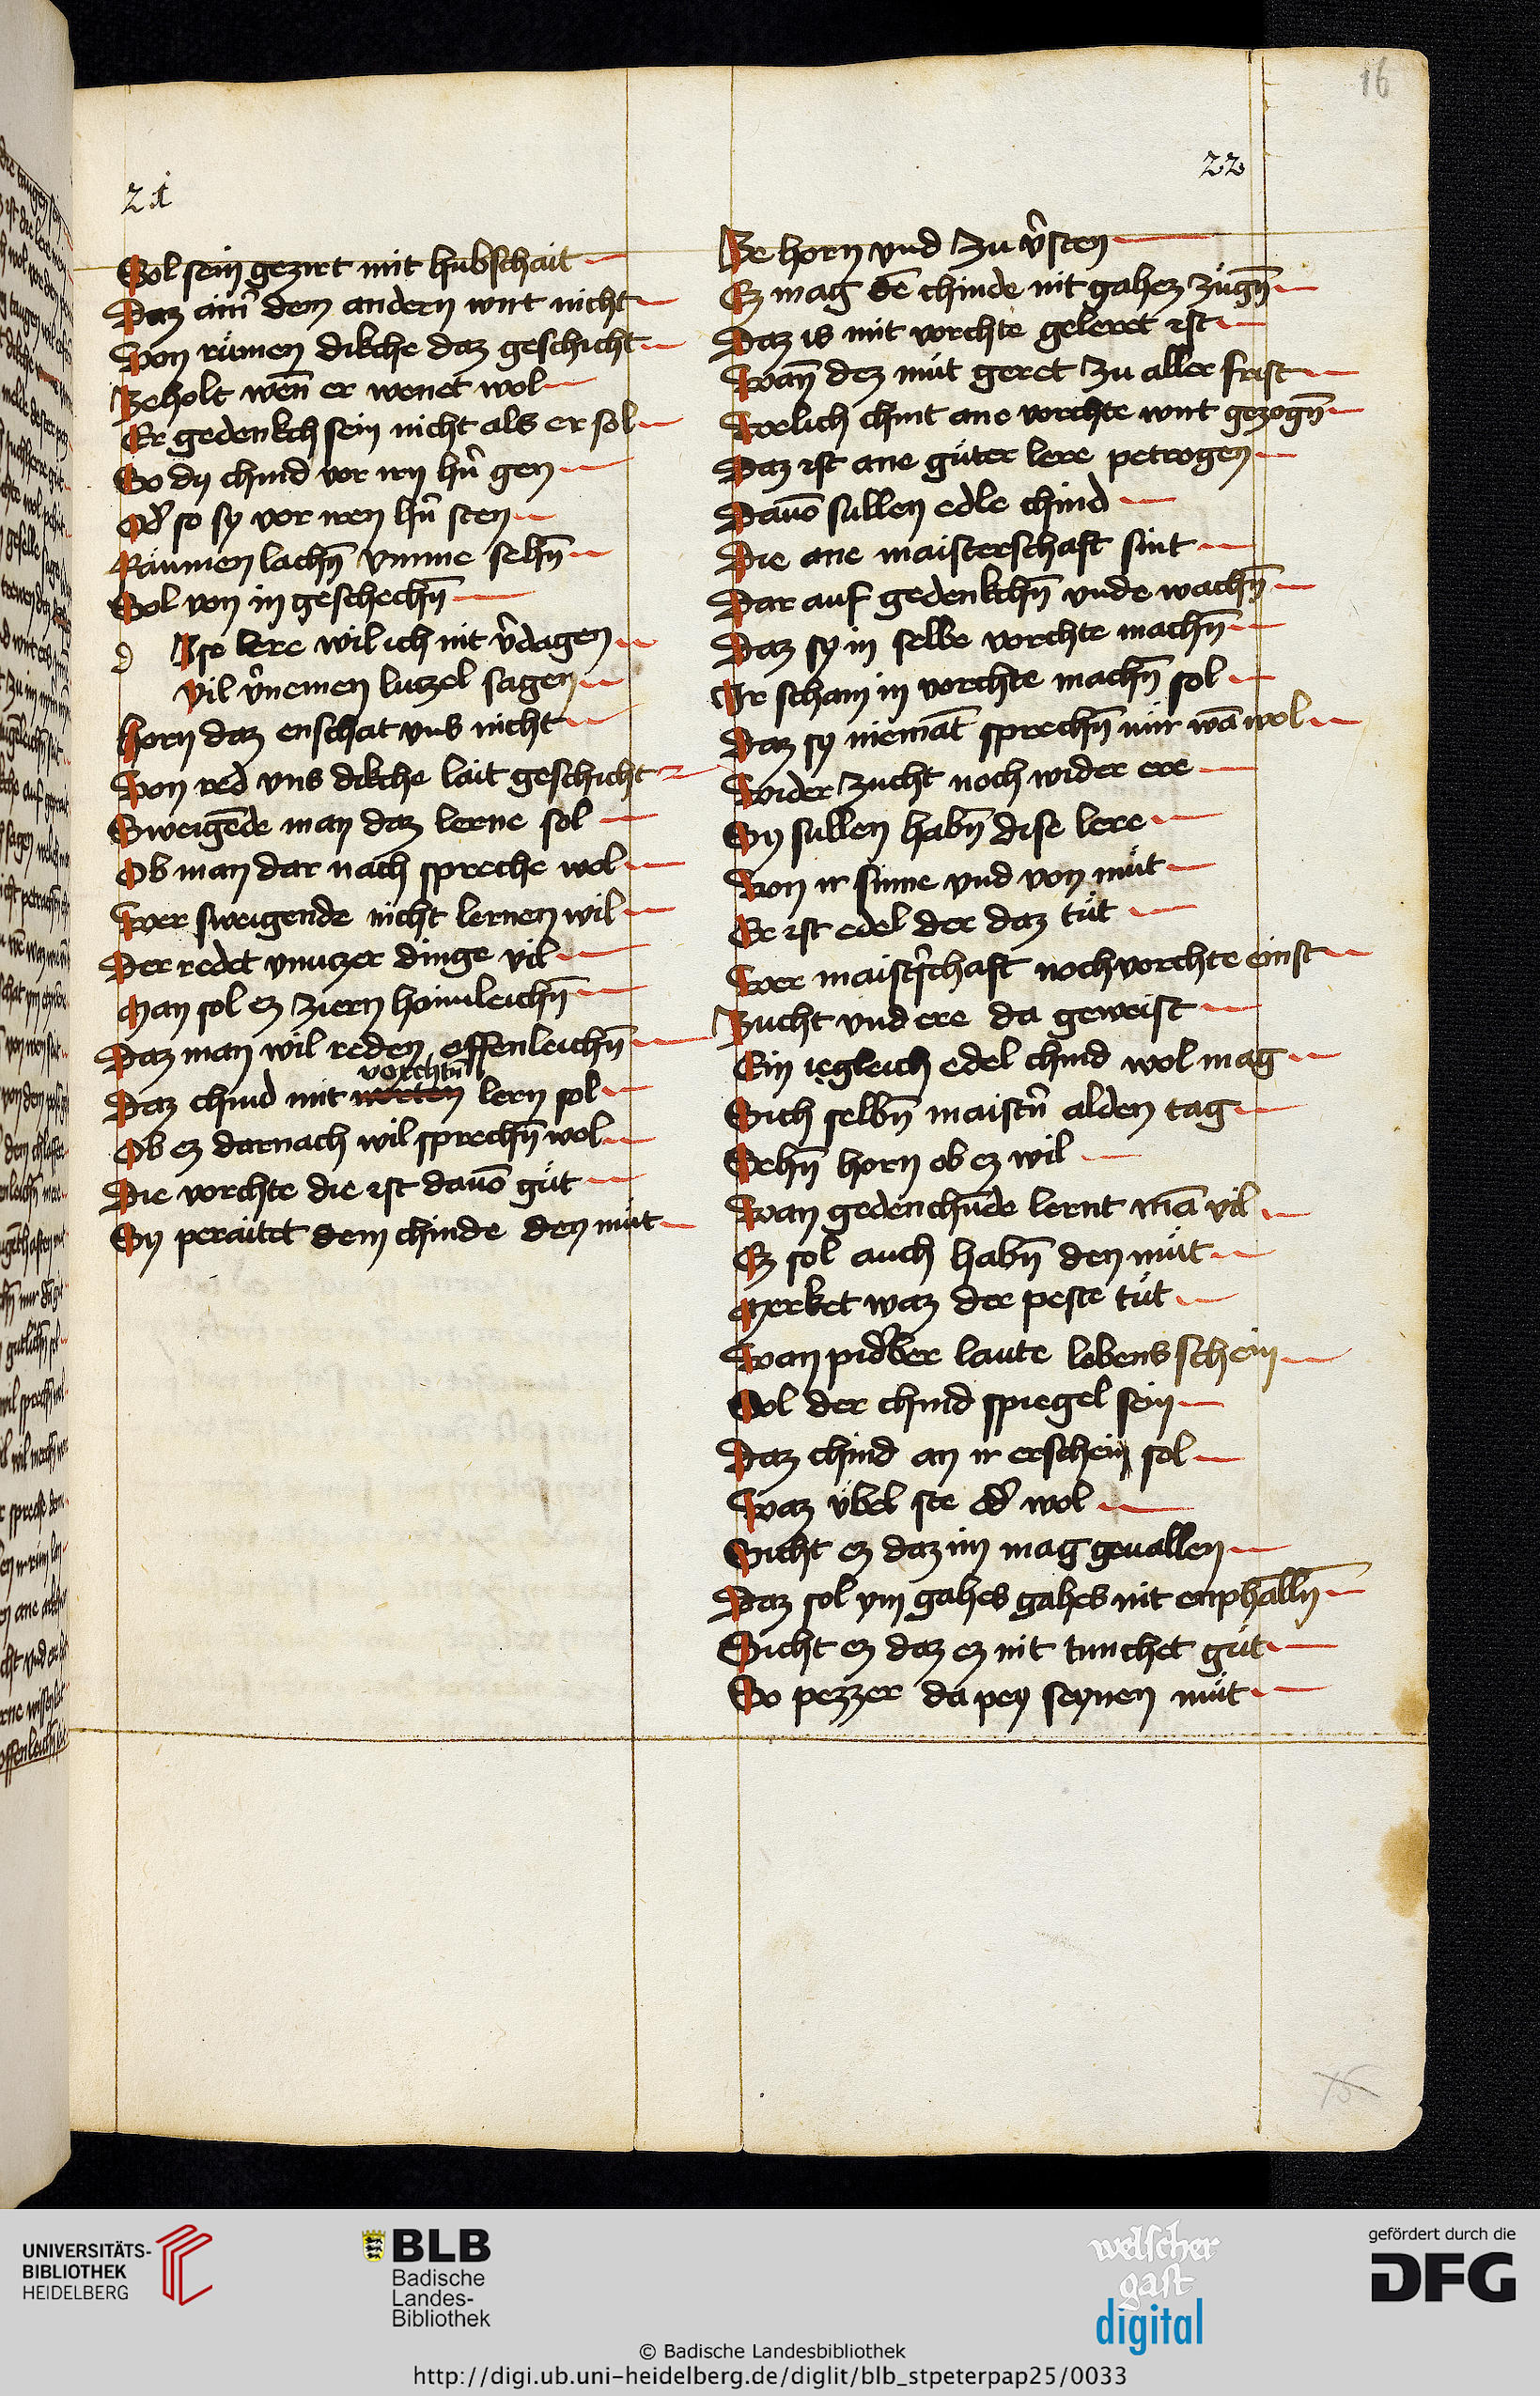 16
21
Sol sein gezirt mit hubschait
Daz ainr̄ dem andern wirt nicht
Von räumen dikche daz geschicht
Beholt wen̄ er wenet wol
Er gedenkch sein nicht als er sol
So dy chind vor irn hr̄n gen
Od̄ so sy vor iren hr̄n sten
Räumen lachn̄ vmme sehn̄
Sol von in geschechn̄
d Jse lere wil ich nit v̄dagen
Vil v̄nemen luczel sagen
Horn daz enschat vns nicht
Von red vns dikche lait geschicht
Sweigēde man daz lerne sol
Ob man dar nach spreche wol
Wer sweigende nicht lernen wil
Der redet vnuczer dinge vil
Man sol ez ziern haimleichn̄
Daz man wil reden offenleichn̄
vorchtn̄
Daz chind mit worten lern sol
Ob ez darnach wil sprechn̄ wol
Die vorchte die ist dauō güt
Sy peraitet dem chinde den müt
22
Ze horn vnd zu v̄sten
Ez mag dē chinde nit gahez zügn̄
Daz is mit vorchte geleret ist
Wan̄ dez müt geret zu aller frist
Welich chint ane vorchte wirt gezogn̄
Daz ist ane güter lere petrogen
Dauō sullen edle chind
Die ane maisterschaft sint
Dar auf gedenkchn̄ vnde wachn̄
Daz sy in selbe vorchte machn̄
Ir scham in vorchte machn̄ sol
Daz sy niemāt sprechn̄ nür wā wol
Wider zucht noch wider ere
Sy sullen habn̄ dise lere
Von ir sinne vnd von müt
Er ist edel der daz tüt
Wer maistr̄schaft noch vorchte einst
Zucht vnd ere da geweist
Ein iegleich edel chind wol mag
Sich selbn̄ maistn̄ alden tag
Sehn̄ horn ob ez wil
Wan gedenchn̄de lernt mā vil
Ez sol auch habn̄ den müt
Merket waz der peste tüt
Wan pid̄ber laute lobens schein
Sol der chind spiegel sein
Daz chind an ir erschein sol
Waz übel ste od̄ wol
Sicht ez daz im mag geuallen
Daz sol ym gahes gahes nit enphalln̄
Sicht ez daz ez nit tunchet güt
So pezzer da pey seynen müt
UNIVERSITÄTS-
BIBLIOTHEK
HEIDELBERG
BLB
Badische
Landes-
Bibliothek
welscher
gast
digital
gefördert durch die
DFG
© Badische Landesbibliothek
http://digi.ub.uni-heidelberg.de/diglit/blb_stpeterpap25/0033